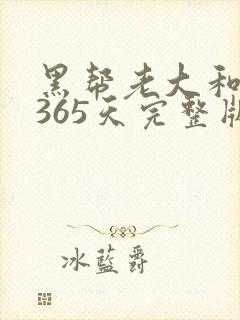 黑帮老大和
365天完整版
冰蓝爵